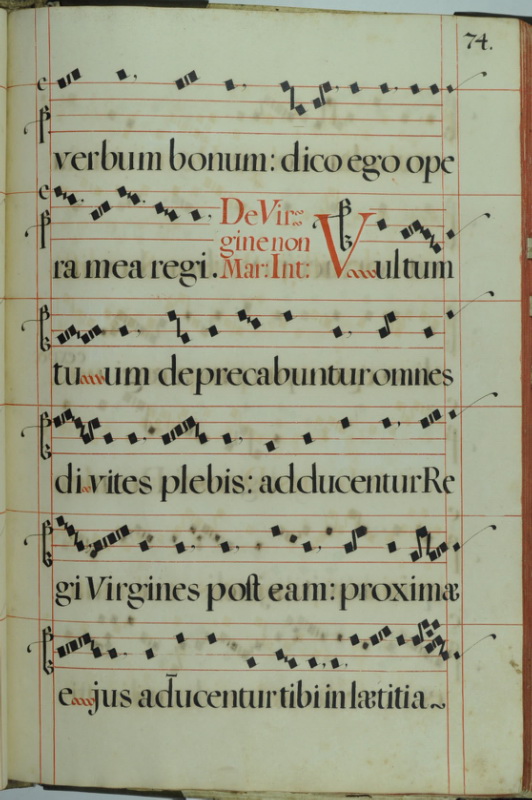 74.
verbum bonum: dico ego ope
De Vir
gine non
ra mea regi. Mar: Int: Vultum
tuum deprecabuntur omnes
divites plebis: adducentur Re
gi Virgines post eam: proximæ
ejus adducentur tibi in lætitia